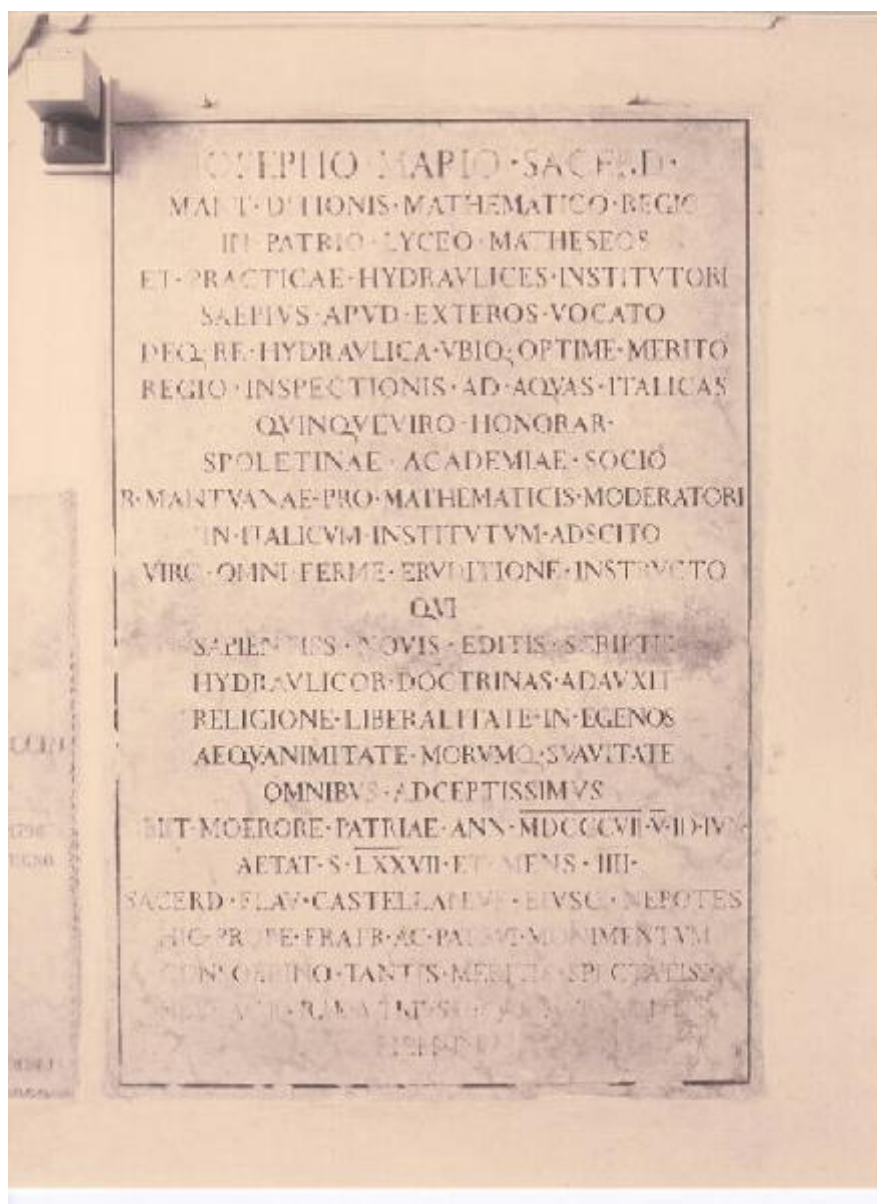 IOSEPHO · MARIO · SACERD ·
MANT · DITIONIS · MATHEMATICO · REGIO
IN · PATRIO · LYCEO · MATHESEOS
ET · PRACTICAE · HYDRAVLICES · INSTITVTORI
SAEPIVS · APVD · EXTEROS · VOCATO
DEQ; RE · HYDRAVLICA · VBIQ; OPTIME · MERITO
REGIO · INSPECTIONIS · AD · AQVAS · ITALICAS
QVINQVEVIRO · HONORAR ·
SPOLETINAE · ACADEMIAE · SOCIO
R · MANTVANAE · PRO · MATHEMATICIS · MODERATORI
IN · ITALICVM · INSTITVTVM · ADSCITO
VIRO · OMNI · FERME · ERVDITIONE · INSTRVCTO
QVI
SAPIENTIES · NOVIS · EDITIS · SCRIPTIS
HYDRAVLICOR · DOCTRINAS · ADAVXIT
RELIGIONE · LIBERALITATE · IN · EGENOS
AEQVANIMITATE · MORVMQ; SVAVITATE
OMNIBVS · ADCEPTISSIMVS
MOERORE · PATRIAE · ANN · MDCCCVII · V · ID · IVN
AETAT · S · LXXVII · ET · MENS · IIII ·
SACERD · FLAV · CASTELLANEVS · EIVSQ; NEPOTES
HIC · PROPE · FRATR · AC · PATRVI · MONIMENTVM
TANTIS · MERITIS